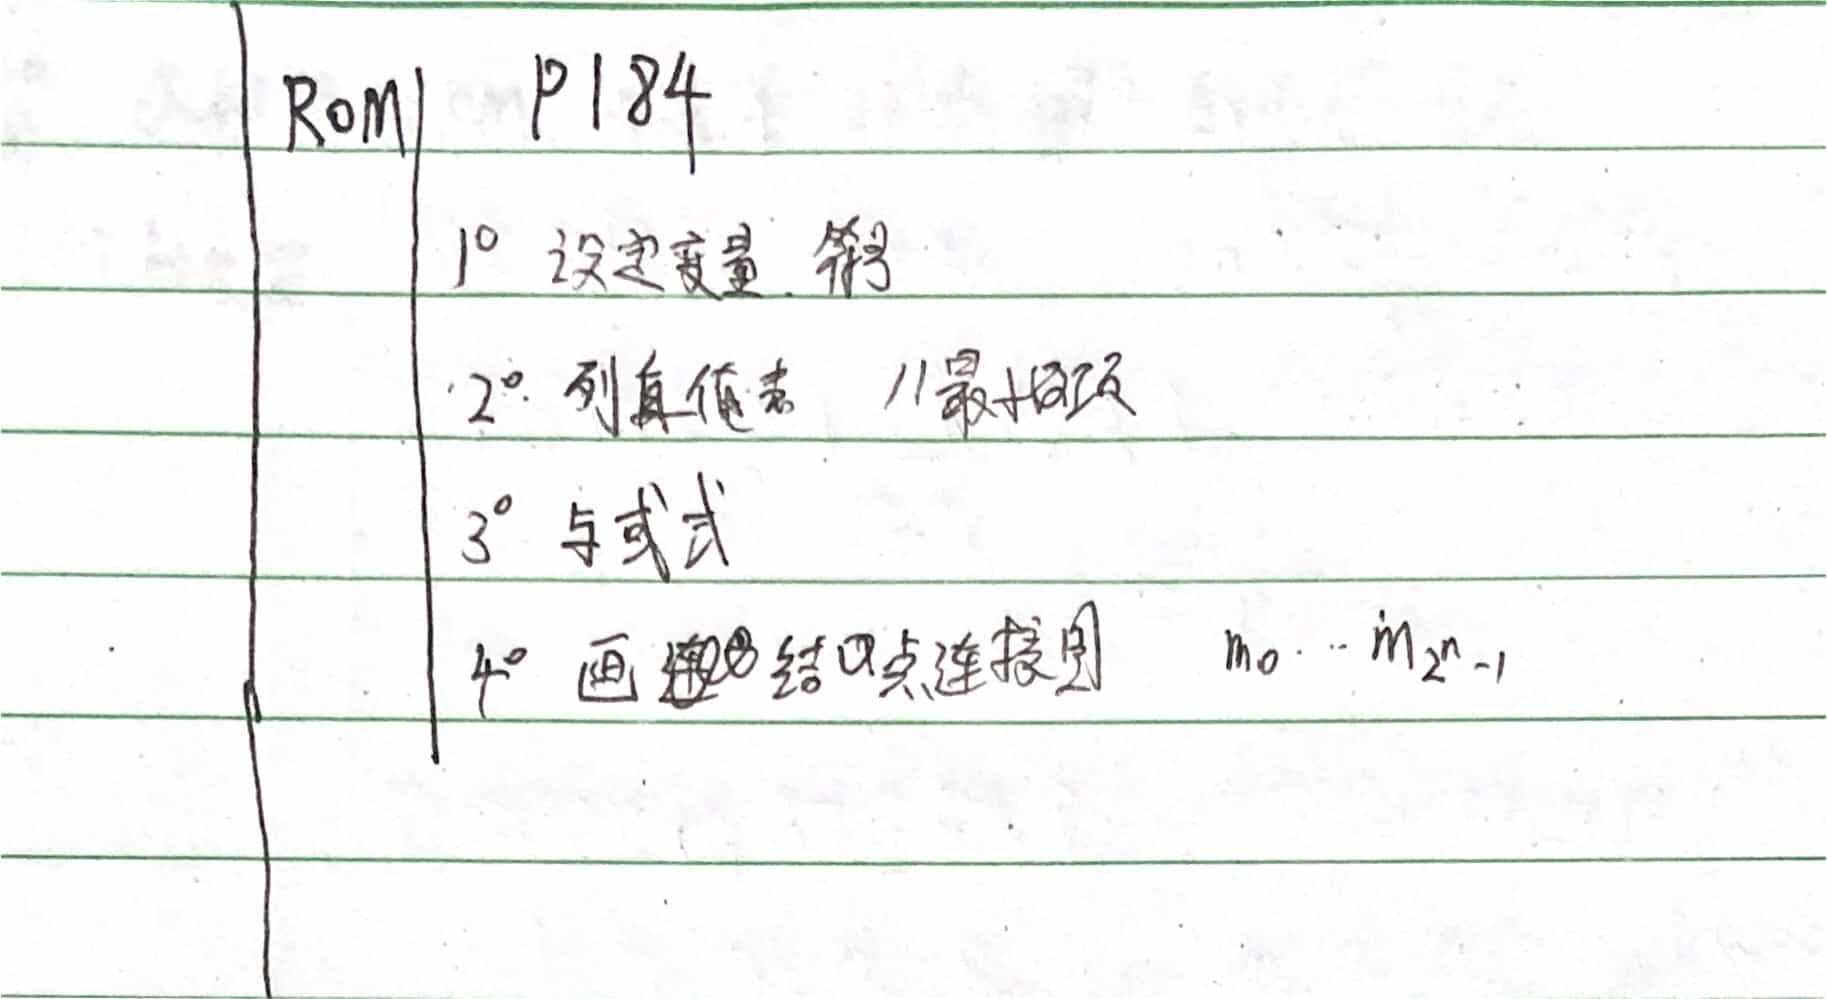 ROM P184
1° 设定变量、符号
2° 列真值表 //最小项
3° 与或式
4° 画结点连接图 m₀…m₂ⁿ₋₁